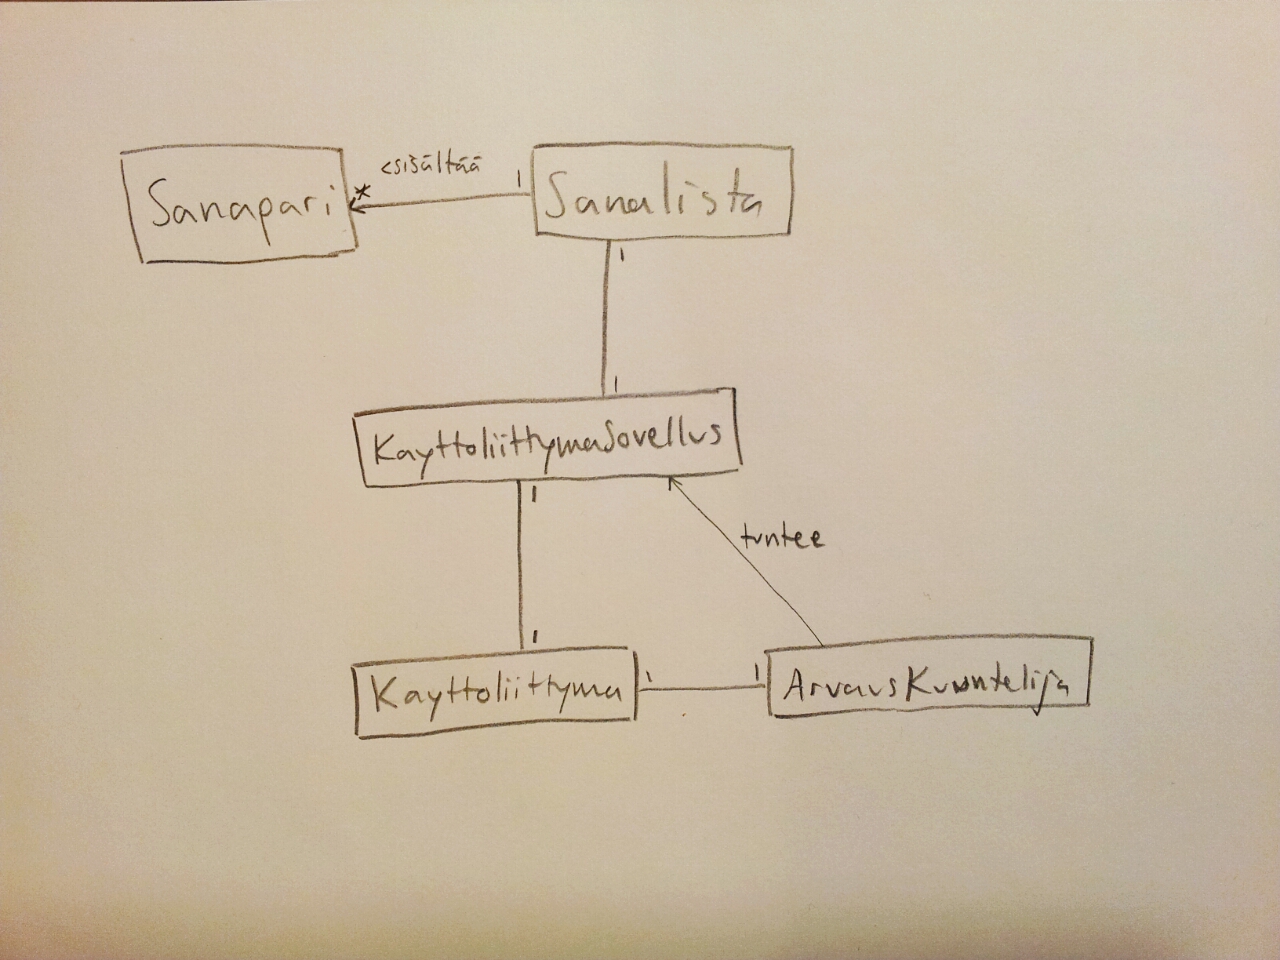 Sanapari
*
<sisältää
1
Sanalista
1
1
KayttoliittymaSovellus
1
tuntee
1
Kayttoliittyma
1
1
ArvausKuuntelija